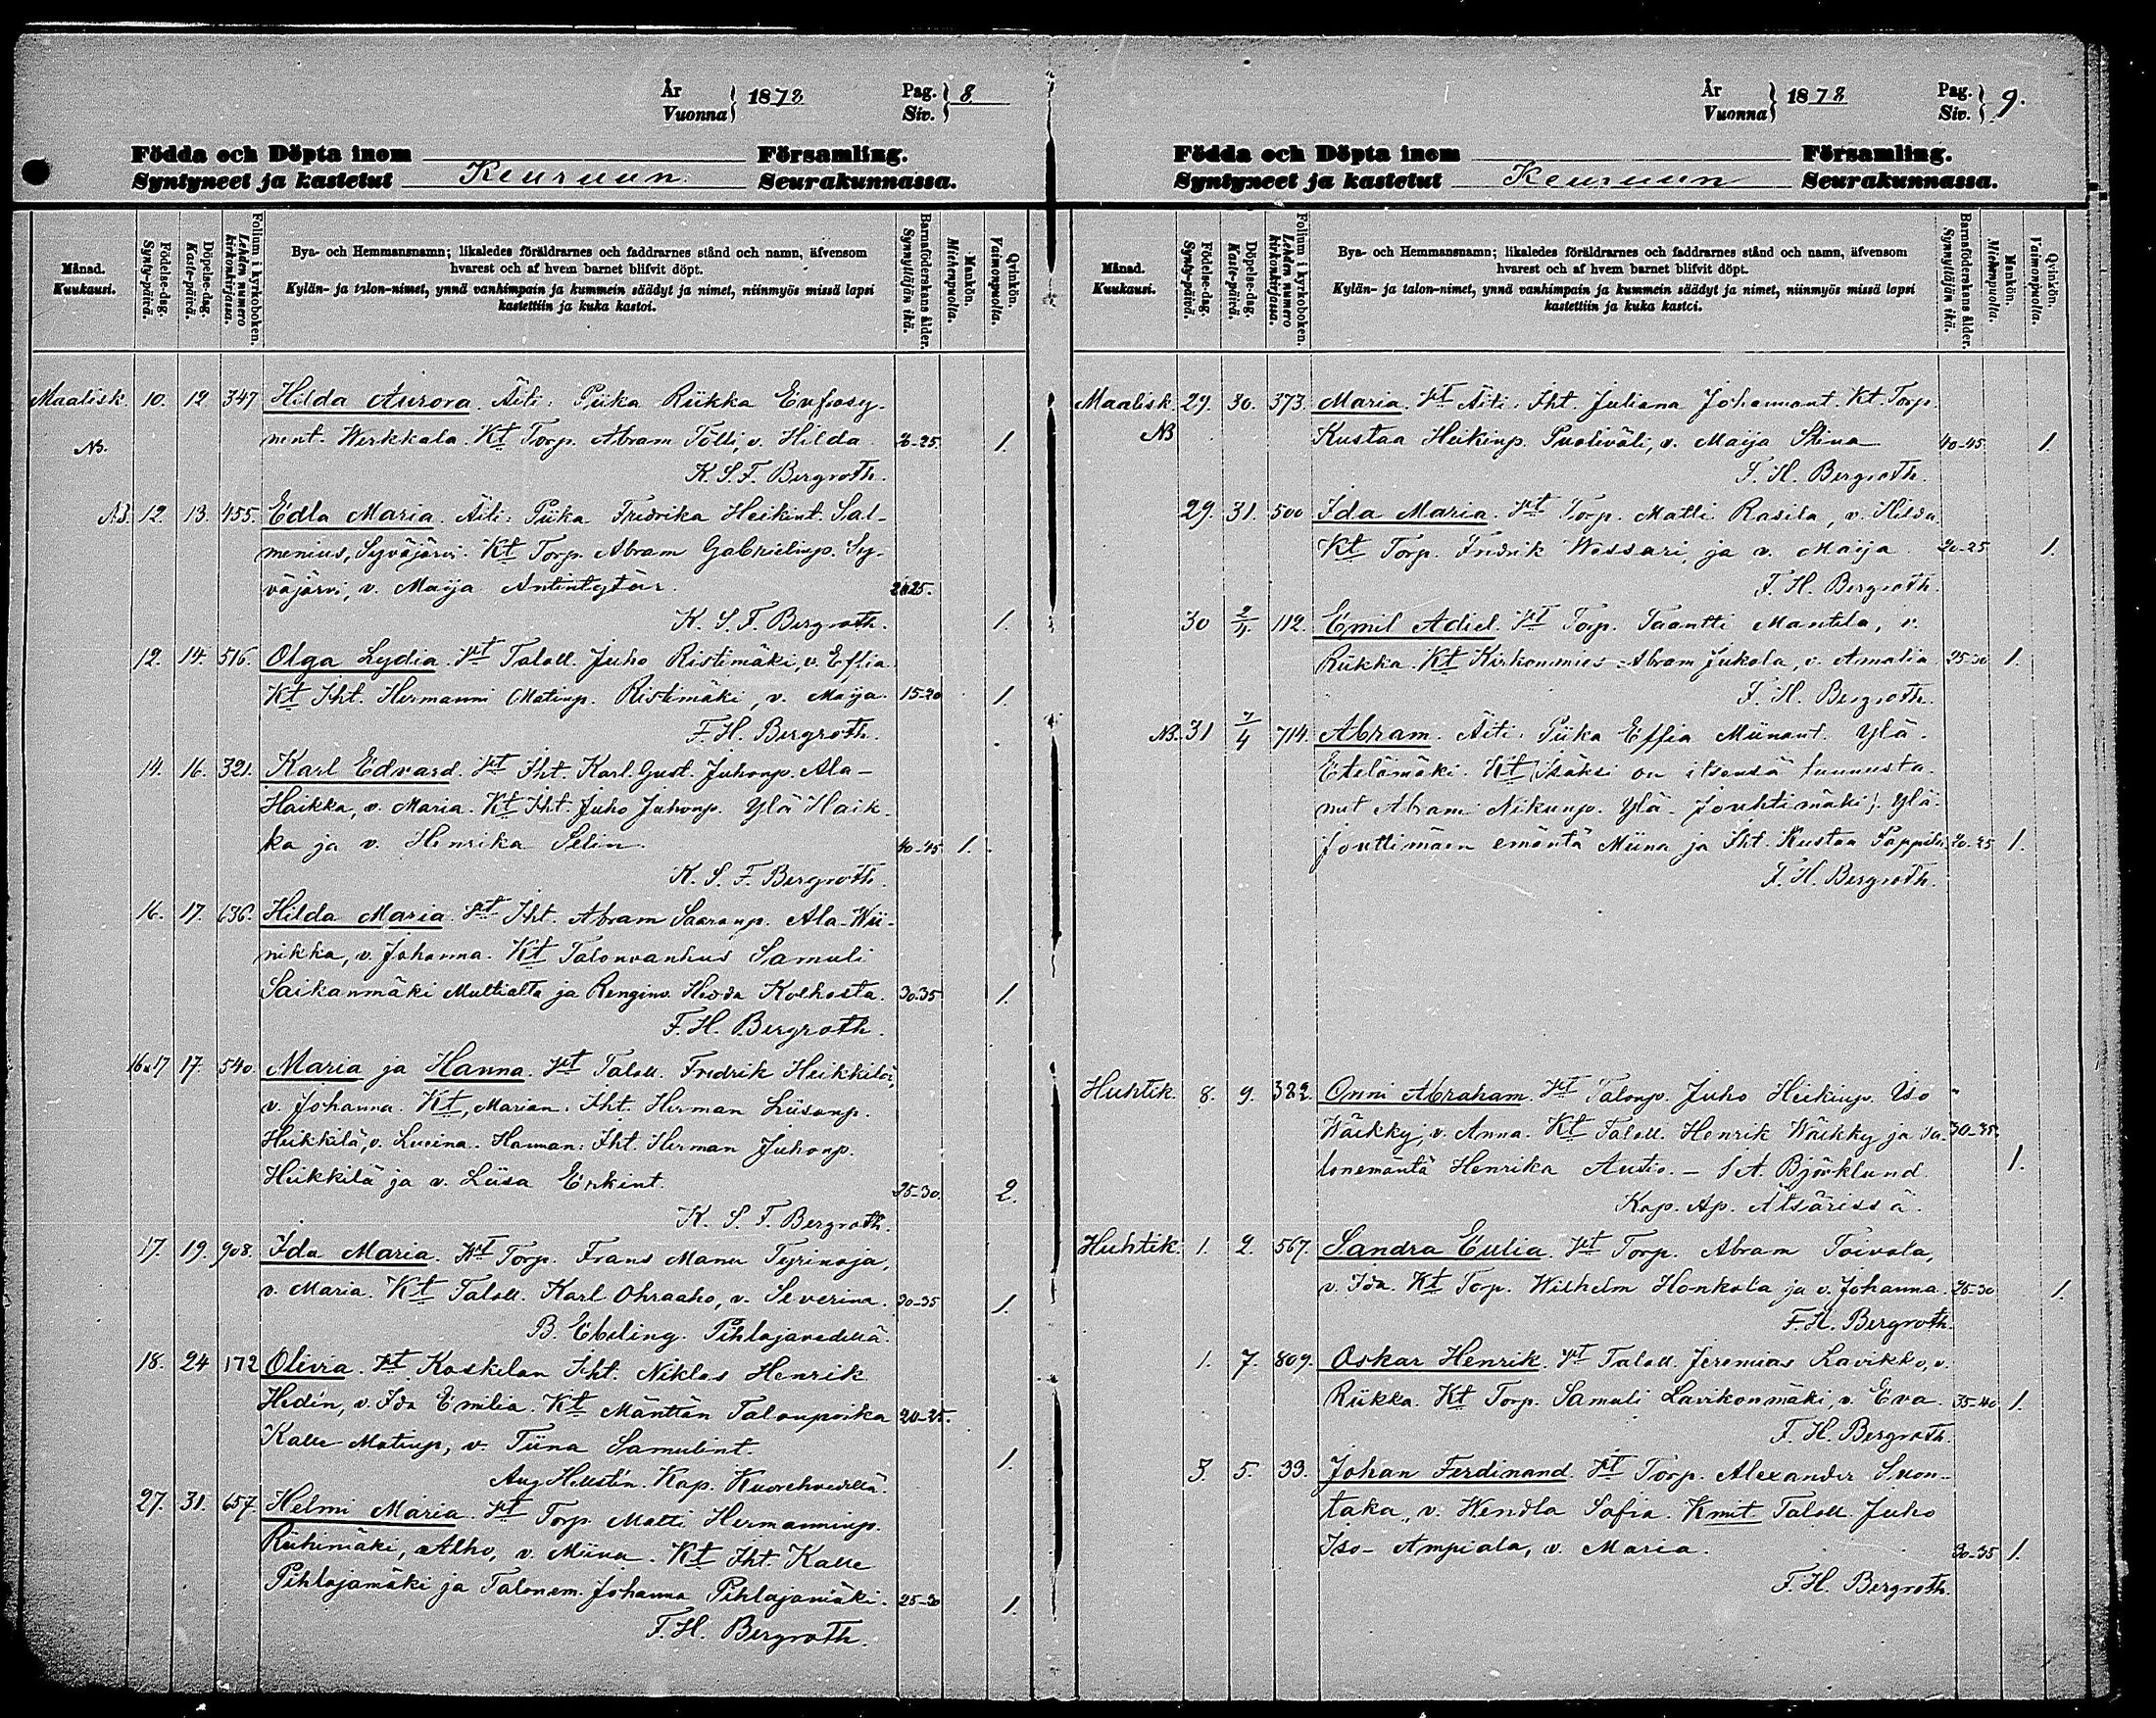 År
Vuonna } 1878
Pag.
Siv. } 8.
Födda och Döpta inom Församling.
Syntyneet ja kastetut Keuruun Seurakunnassa.
Månad.
Kuukausi.
Födelse-dag.
Synty-päivä.
Döpelse-dag.
Kaste-päivä.
Folium i kyrkoboken.
Lehden numero kirkonkirjassa.
Bya- och Hemmansnamn; likaledes föräldrarnes och faddrarnes stånd och namn, äfvensom
hvarest och af hvem barnet blifvit döpt.
Kylän- ja talon-nimet, ynnä vanhimpain ja kummein säädyt ja nimet, niinmyös missä lapsi
kastettiin ja kuka kastoi.
Barnaföderskans ålder.
Synnyttäjän ikä.
Mankön.
Miehenpuolia.
Qvinkön.
Vaimonpuolia.
Maalisk. 10. 12 347 Hilda Aurora. Äiti: Piika Riikka Eufrosy-
NB. nint. Werkkala. Kt Torp. Abram Tölli, v. Hilda 20-25. 1.
K. S. F. Bergroth.
NB. 12. 13. 455. Edla Maria. Äiti: Piika Fredrika Heikint. Sal-
menius, Syväjärvi. Kt Torp. Abram Gabrielinp. Sy-
väjärvi, v. Maija Antintytär. 20-25.
K. S. F. Bergroth. 1.
12. 14. 516. Olga Lydia. Vt Taloll. Juho Ristimäki, v. Effia
Kt Iht. Hermanni Matinp. Ristimäki, v. Maija. 15-20 1.
F. H. Bergroth.
14. 16. 321. Karl Edvard. Vt Iht. Karl Gust. Juhonp. Ala-
Haikka, v. Maria. Kt Iht. Juho Juhonp. Ylä Haik-
ka ja v. Henrika Selin. 40-45 1.
K. S. F. Bergroth.
16. 17. 636. Hilda Maria. Vt Iht. Abram Saaranp. Ala-Wii-
nikka, v. Johanna. Kt Talonvanhus Samuli
Saikanmäki Multialta ja Renginv. Hedda Kolhosta. 30-35 1.
F. H. Bergroth.
16 17 17. 540. Maria ja Hanna. Vt Taloll. Fredrik Heikkilä,
v. Johanna. Kt, Marian: Iht. Herman Liisanp.
Heikkilä, v. Lucina. Hannan: Iht. Herman Juhonp.
Heikkilä ja v. Liisa Erkint. 25-30. 2.
K. S. F. Bergroth.
17. 19. 908. Ida Maria. Vt Torp. Frans Manu Tyrinoja,
v. Maria. Kt Taloll. Karl Ohraaho, v. Severina. 30-35 1.
B. Ebeling. Pihlajavedellä
18. 24 172 Olivia. Vt Koskelan Iht. Niklas Henrik
Hedén, v. Ida Emilia. Kt Mänttän Talonpoika 20-25.
Kalle Matinp, v. Tiina Samulint. 1.
Aug Hellstén. Kap. Kuorehvedellä.
27. 31. 657 Helmi Maria. Vt Torp. Matti Hermanninp.
Riihimäki, Alho, v. Miina. Kt Iht. Kalle
Pihlajamäki ja Talonem. Johanna Pihlajamäki. 25-30 1.
F. H. Bergroth.
År
Vuonna } 1878
Pag.
Siv. } 9.
Födda och Döpta inom Församling.
Syntyneet ja kastetut Keuruun Seurakunnassa.
Månad.
Kuukausi.
Födelse-dag.
Synty-päivä.
Döpelse-dag.
Kaste-päivä.
Folium i kyrkoboken.
Lehden numero kirkonkirjassa.
Bya- och Hemmansnamn; likaledes föräldrarnes och faddrarnes stånd och namn, äfvensom
hvarest och af hvem barnet blifvit döpt.
Kylän- ja talon-nimet, ynnä vanhimpain ja kummein säädyt ja nimet, niinmyös missä lapsi
kastettiin ja kuka kastoi.
Barnaföderskans ålder.
Synnyttäjän ikä.
Mankön.
Miehenpuolia.
Qvinkön.
Vaimonpuolia.
Maalisk. 29. 30. 373. Maria. Vt Äiti: Iht. Juliana Johannant. Kt. Torp.
NB Kustaa Heikinp. Puoliväli, v. Maija Stina 40-45 1.
F. H. Bergroth.
29. 31. 500 Ida Maria. Vt Torp. Matti Rasila, v. Hilda
Kt Torp. Fredrik Wessari, ja v. Maija. 20-25 1.
F. H. Bergroth.
30 2/4 112. Emil Adiel. Vt Torp. Taantti Mantila, v.
Riikka. Kt Kirkonmies Abram Jukola, v. Amalia 25-30 1.
F. H. Bergroth.
NB. 31 7/4 714. Abram. Äiti: Piika Effia Miinant. Ylä-
Etelämäki. Kt (Isäksi on itsensä tunnusta-
nut Abram Nikunp. Ylä-Jouhtimäki). Ylä-
Jouttimäen emäntä Miina ja Iht. Kustaa Pappila 20-25 1.
F. H. Bergroth.
Huhtik. 8. 9. 382. Onni Abraham. Vt Talonp. Juho Heikinp. Iso
Wäikky, v. Anna. Kt Taloll. Henrik Wäikky ja ta- 30-35.
lonemäntä Henrika Autio. — A. Björklund 1.
Kap. Ap. Ätsärissä.
Huhtik. 1. 2. 567. Sandra Eulia. Vt Torp. Abram Toivola,
v. Ida. Kt Torp. Wilhelm Honkola ja v. Johanna. 25-30 1.
F. H. Bergroth.
1. 7. 809. Oskar Henrik. Vt Taloll. Jeremias Lavikko, v.
Riikka. Kt Torp. Samuli Lavikonmäki, v. Eva. 35-40 1.
F. H. Bergroth.
3. 5. 33. Johan Ferdinand. Vt Torp. Alexander Suon-
taka, v. Wendla Sofia. Kmit. Taloll. Juho
Iso-Ampiala, v. Maria. 30-35 1.
F. H. Bergroth.